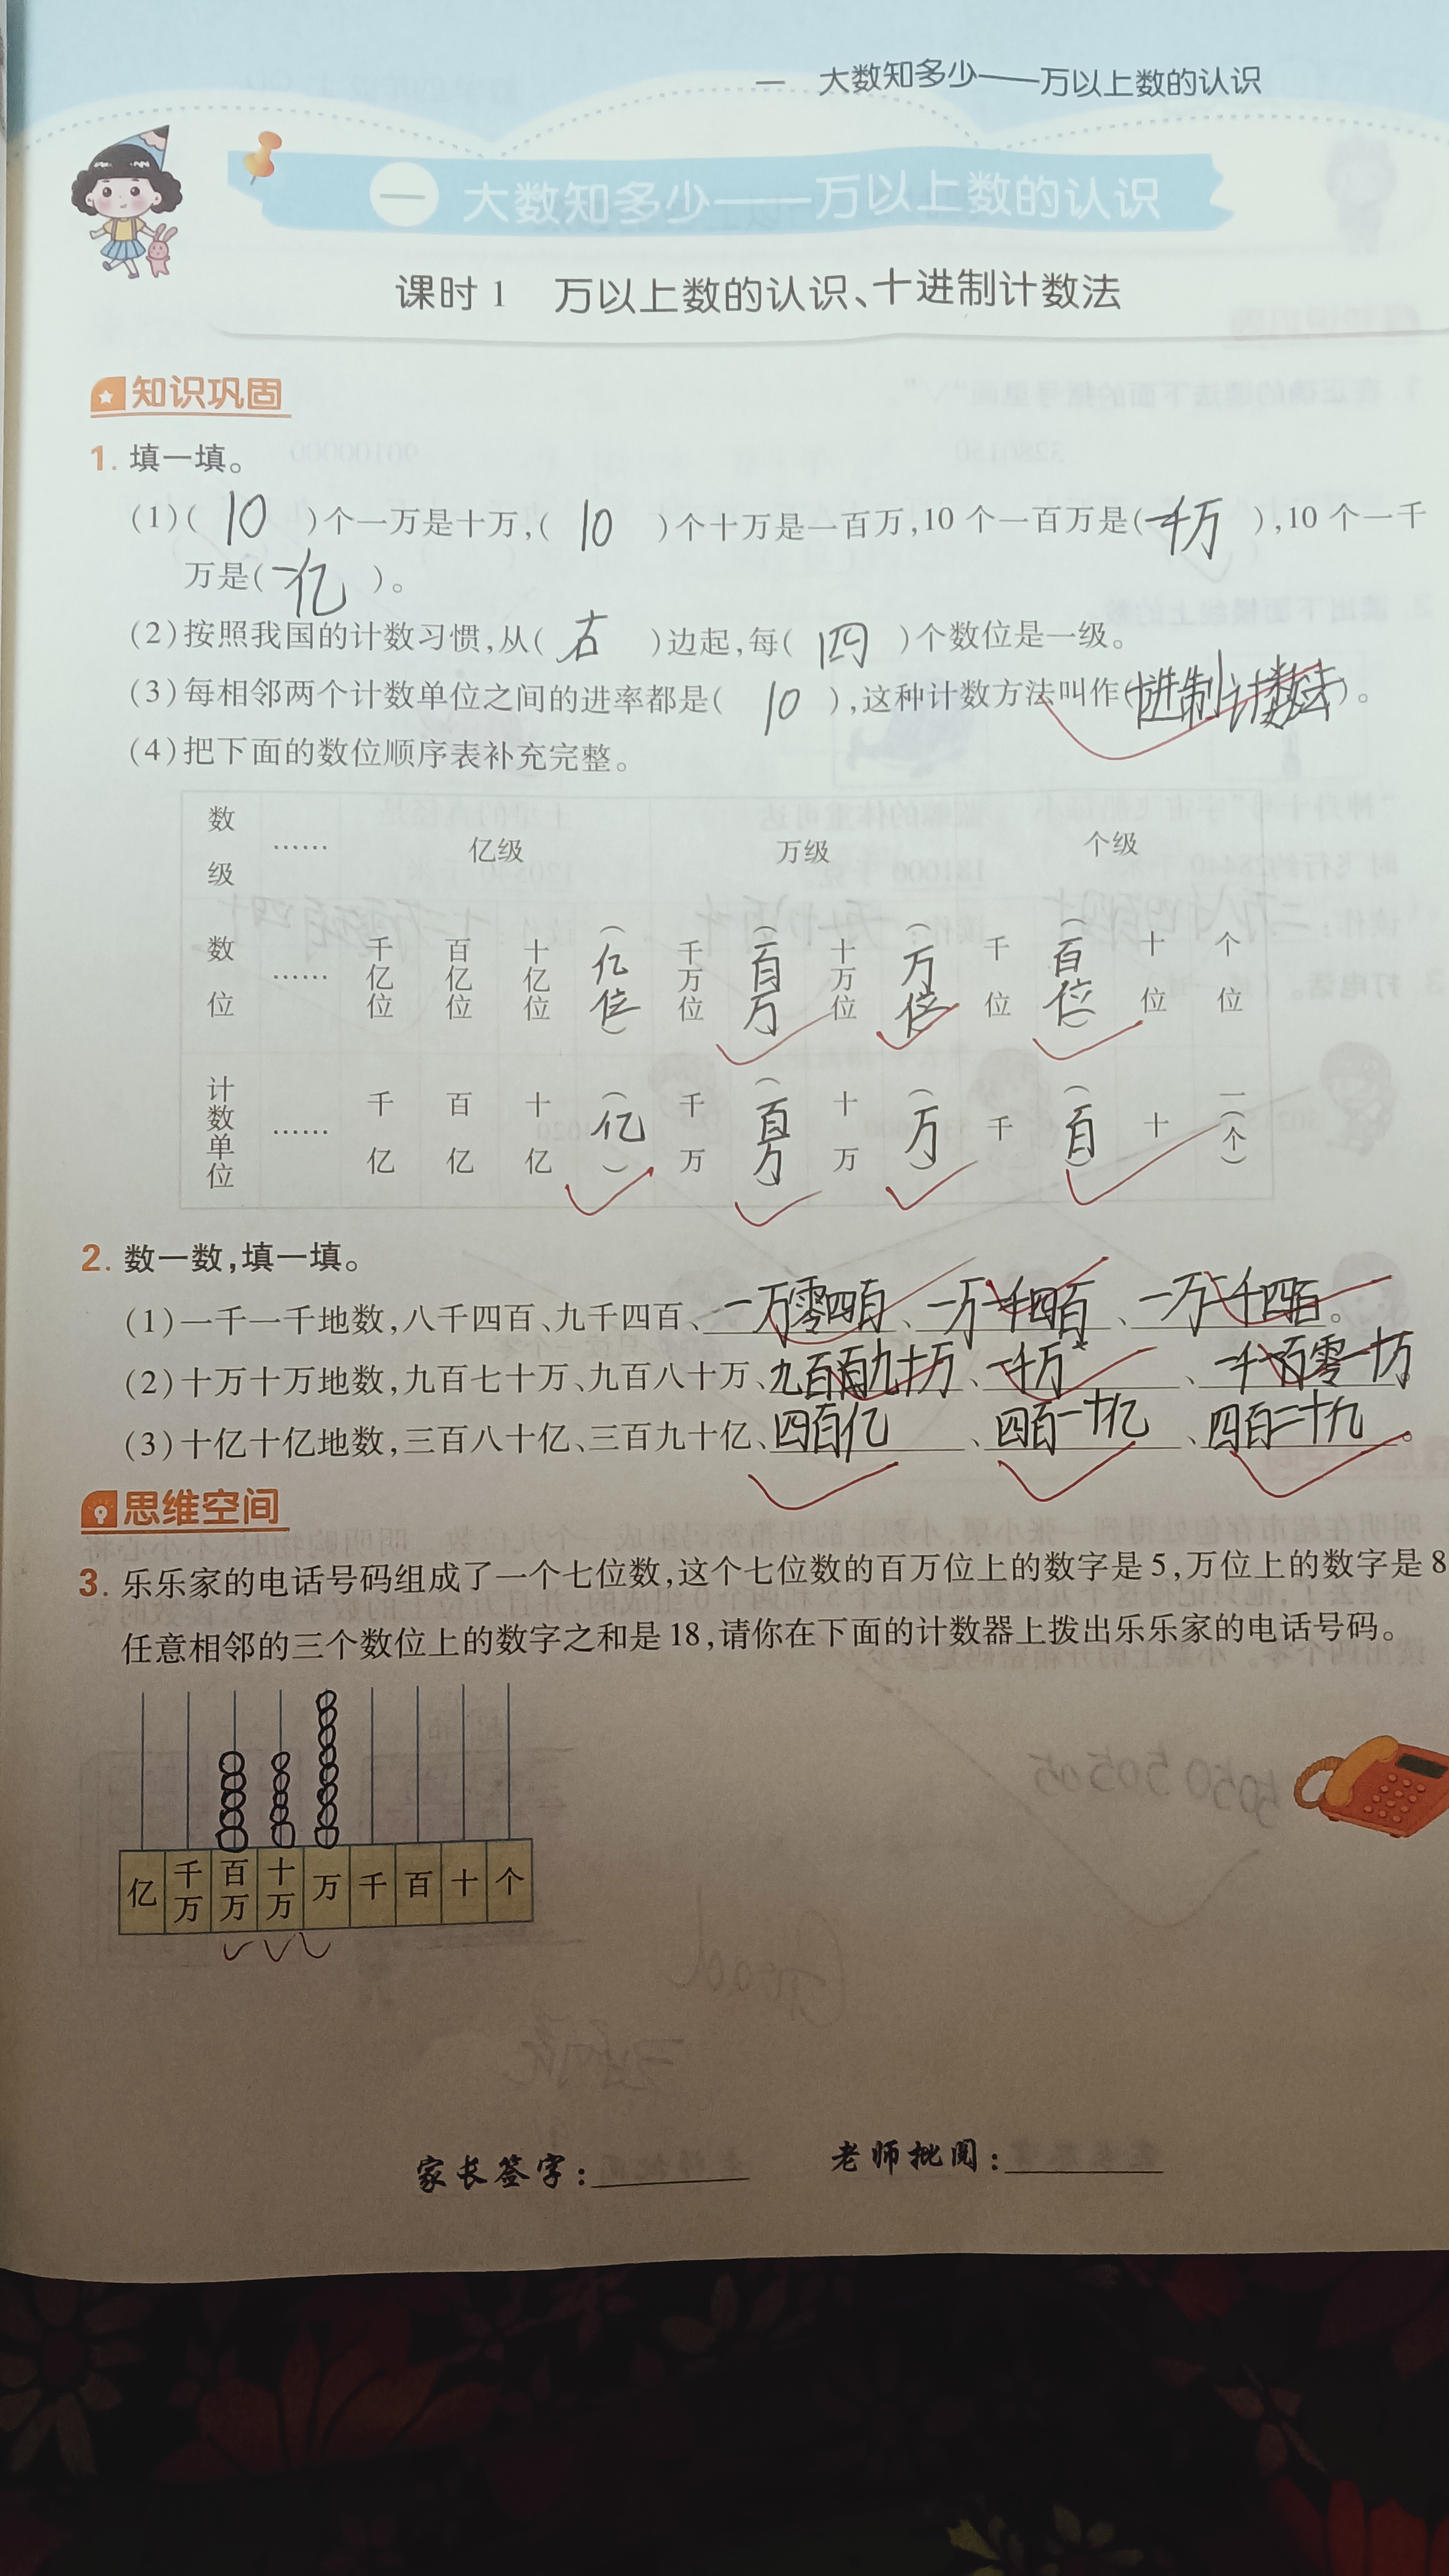 一 大数知多少——万以上数的认识
一 大数知多少——万以上数的认识
课时1 万以上数的认识、十进制计数法
知识巩固
1. 填一填。
(1)( 10 )个一万是十万,( 10 )个十万是一百万,10个一百万是(一千万),10个一千
万是(一亿)。
(2)按照我国的计数习惯,从( 右 )边起,每( 四 )个数位是一级。
(3)每相邻两个计数单位之间的进率都是( 10 ),这种计数方法叫作(十进制计数法)。
(4)把下面的数位顺序表补充完整。
数级 …… 亿级 万级 个级
数位 …… 千亿位 百亿位 十亿位 (亿位) 千万位 (百万) 十万位 (万位) 千位 (百位) 十位 个位
计数单位 …… 千亿 百亿 十亿 (亿) 千万 (百万) 十万 (万) 千 (百) 十 一(个)
2. 数一数,填一填。
(1)一千一千地数,八千四百、九千四百、一万零四百、一万一千四百、一万二千四百。
(2)十万十万地数,九百七十万、九百八十万、九百九十万、一千万、一千百零一十万。
(3)十亿十亿地数,三百八十亿、三百九十亿、四百亿、四百一十亿、四百二十亿。
思维空间
3. 乐乐家的电话号码组成了一个七位数,这个七位数的百万位上的数字是5,万位上的数字是8
任意相邻的三个数位上的数字之和是18,请你在下面的计数器上拨出乐乐家的电话号码。
亿 千万 百万 十万 万 千 百 十 个
家长签字: 老师批阅: